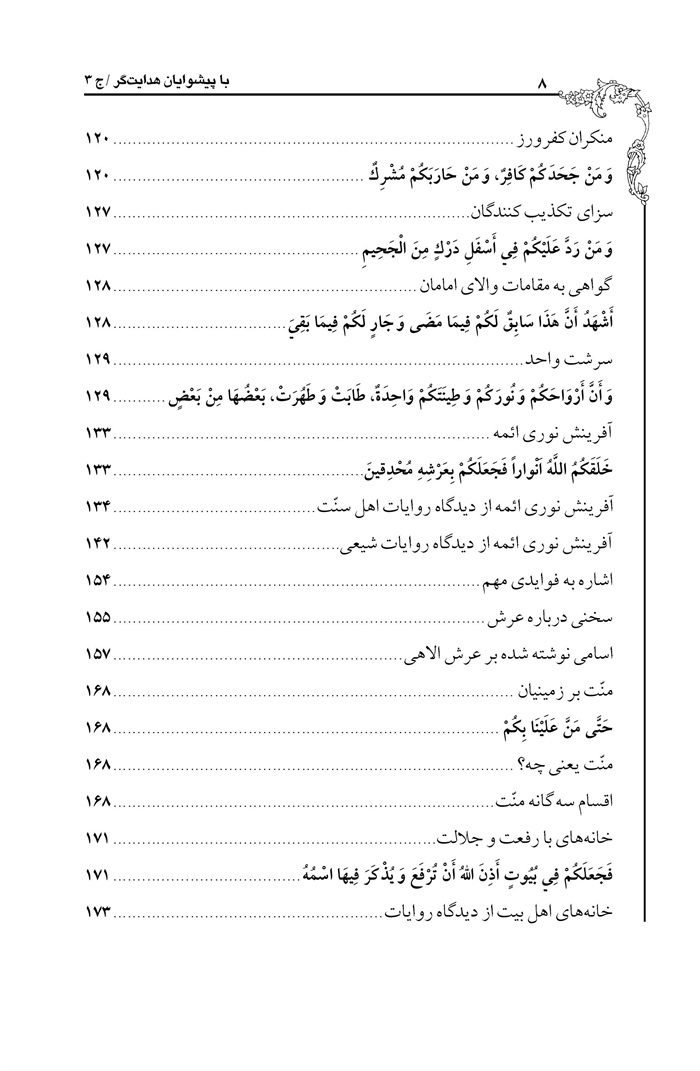 ۸ با پیشوایان هدایت‌گر / ج ۳
منکران کفرورز ........ ۱۲۰
وَ مَنْ جَحَدَكُمْ كَافِرٌ، وَ مَنْ حَارَبَكُمْ مُشْرِكٌ ........ ۱۲۰
سزای تکذیب کنندگان ........ ۱۲۷
وَ مَنْ رَدَّ عَلَيْكُمْ فِي أَسْفَلِ دَرْكٍ مِنَ الْجَحِيمِ ........ ۱۲۷
گواهی به مقامات والای امامان ........ ۱۲۸
أَشْهَدُ أَنَّ هَذَا سَابِقٌ لَكُمْ فِيمَا مَضَى وَ جَارٍ لَكُمْ فِيمَا بَقِيَ ........ ۱۲۸
سرشت واحد ........ ۱۲۹
وَ أَنَّ أَرْوَاحَكُمْ وَ نُورَكُمْ وَ طِينَتَكُمْ وَاحِدَةٌ، طَابَتْ وَ طَهُرَتْ، بَعْضُهَا مِنْ بَعْضٍ ........ ۱۲۹
آفرینش نوری ائمه ........ ۱۳۳
خَلَقَكُمُ اللَّهُ أَنْواراً فَجَعَلَكُمْ بِعَرْشِهِ مُحْدِقِينَ ........ ۱۳۳
آفرینش نوری ائمه از دیدگاه روایات اهل سنّت ........ ۱۳۴
آفرینش نوری ائمه از دیدگاه روایات شیعی ........ ۱۴۲
اشاره به فوایدی مهم ........ ۱۵۴
سخنی درباره عرش ........ ۱۵۵
اسامی نوشته شده بر عرش الاهی ........ ۱۵۷
منّت بر زمینیان ........ ۱۶۸
حَتَّى مَنَّ عَلَيْنَا بِكُمْ ........ ۱۶۸
منّت یعنی چه؟ ........ ۱۶۸
اقسام سه گانه منّت ........ ۱۶۸
خانه‌های با رفعت و جلالت ........ ۱۷۱
فَجَعَلَكُمْ فِي بُيُوتٍ أَذِنَ اللهُ أَنْ تُرْفَعَ وَ يُذْكَرَ فِيهَا اسْمُهُ ........ ۱۷۱
خانه‌های اهل بیت از دیدگاه روایات ........ ۱۷۳